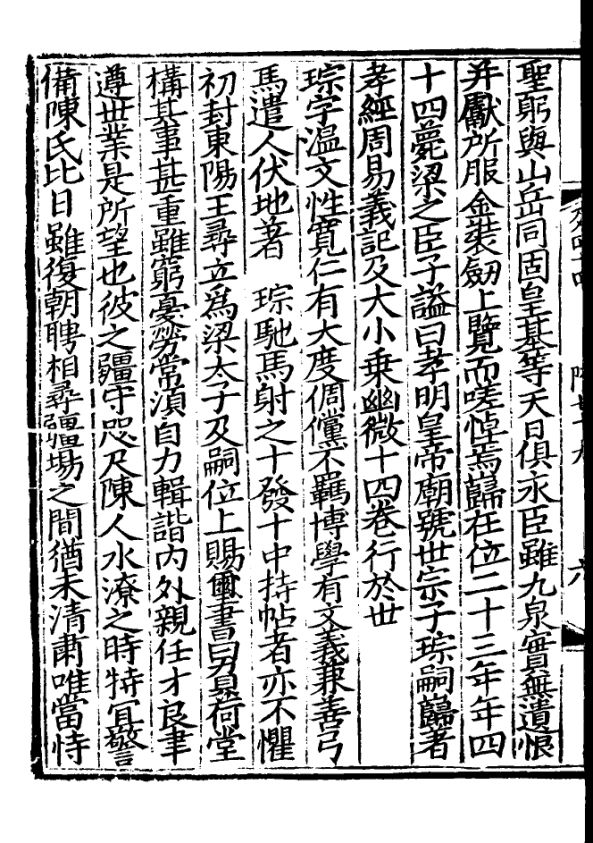 聖躬與山岳同固皇基等天日俱永臣雖九泉實無遺恨
并獻所服金裝劒上覽而嗟悼焉巋在位二十三年年四
十四薨梁之臣子謚曰孝明皇帝廟號世宗子琮嗣巋著
孝經周易義記及大小乗幽微十四卷行於世
琮字温文性寬仁有大度倜儻不羈博學有文義兼善弓
馬遣人伏地著 琮馳馬射之十發十中持帖者亦不懼
初封東陽王尋立爲梁太子及嗣位上賜璽書曰負荷堂
構其事甚重雖窮憂勞常湏自力輯諧内外親任才良聿
遵世業是所望也彼之疆守咫尺陳人水潦之時特冝警
備陳氏比日雖復朝聘相尋疆場之間猶未清肅唯當恃